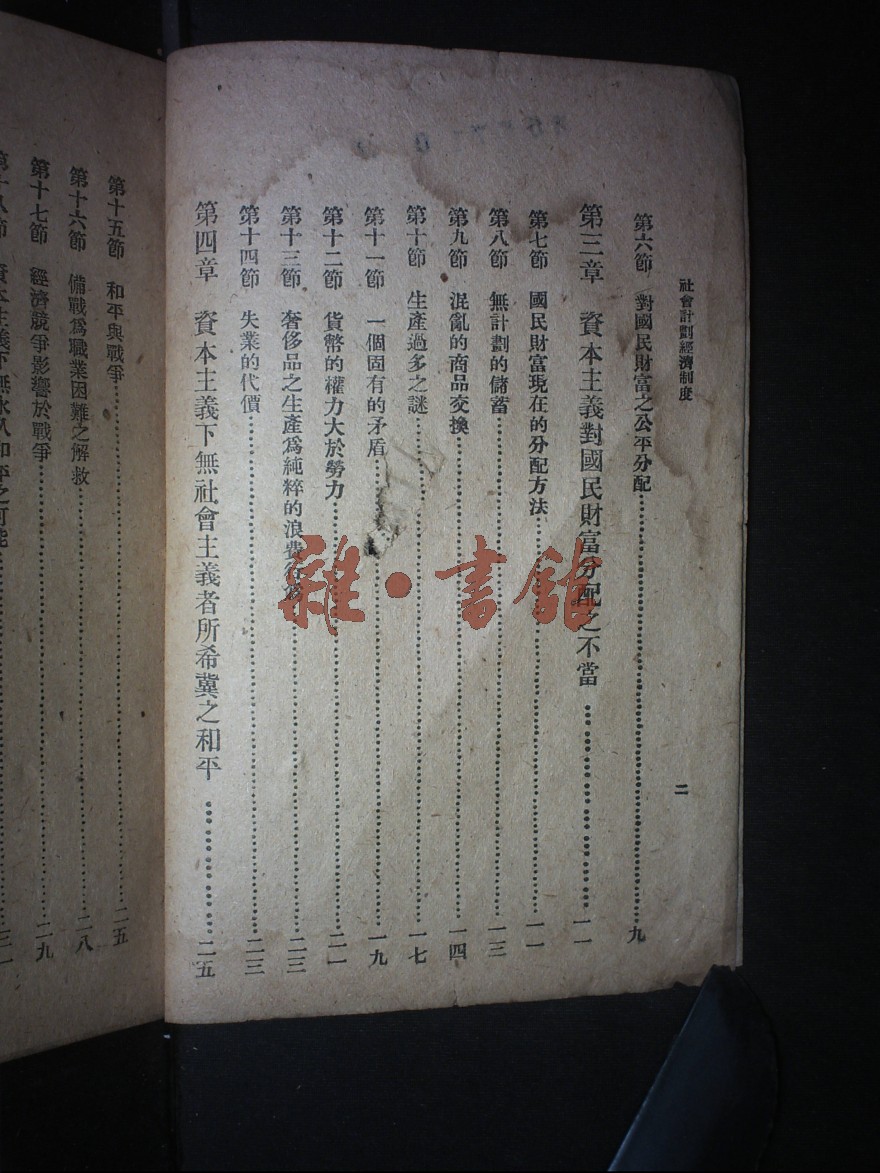 社會計劃經濟制度
二
第六節 對國民財富之公平分配……九
第三章 資本主義對國民財富分配之不當……一一
第七節 國民財富現在的分配方法……一一
第八節 無計劃的儲蓄……一三
第九節 混亂的商品交換……一四
第十節 生產過多之謎……一七
第十一節 一個固有的矛盾……一九
第十二節 貨幣的權力大於勞力……二一
第十三節 奢侈品之生產爲純粹的浪費……二三
第十四節 失業的代價……二三
第四章 資本主義下無社會主義者所希冀之和平……二五
第十五節 和平與戰爭……二五
第十六節 備戰爲職業困難之解救……二八
第十七節 經濟競爭影響於戰爭……二九
第十八節 資本主義下無永久和平之可能……三一
雜·書館